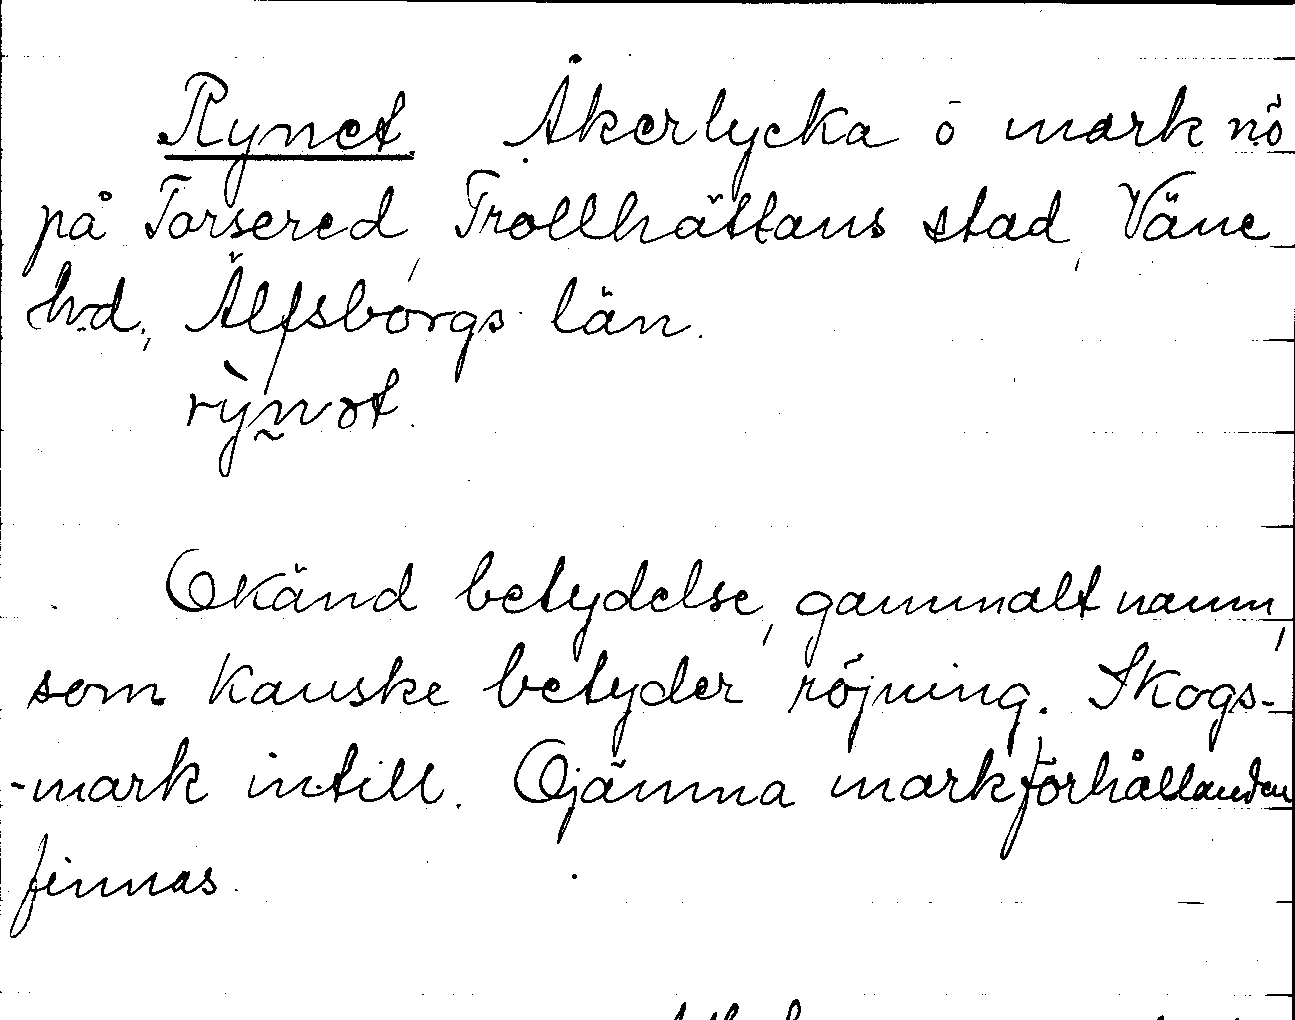 Rynet. Åkerlycka o mark nö
på Torsered, Trollhättans stad, Väne
hd., Älfsborgs län.
rỳn̰ət.
Okänd betydelse, gammalt namn,
som kanske betyder röjning. Skogs-
-mark intill. Ojämna markförhållanden
finnas.